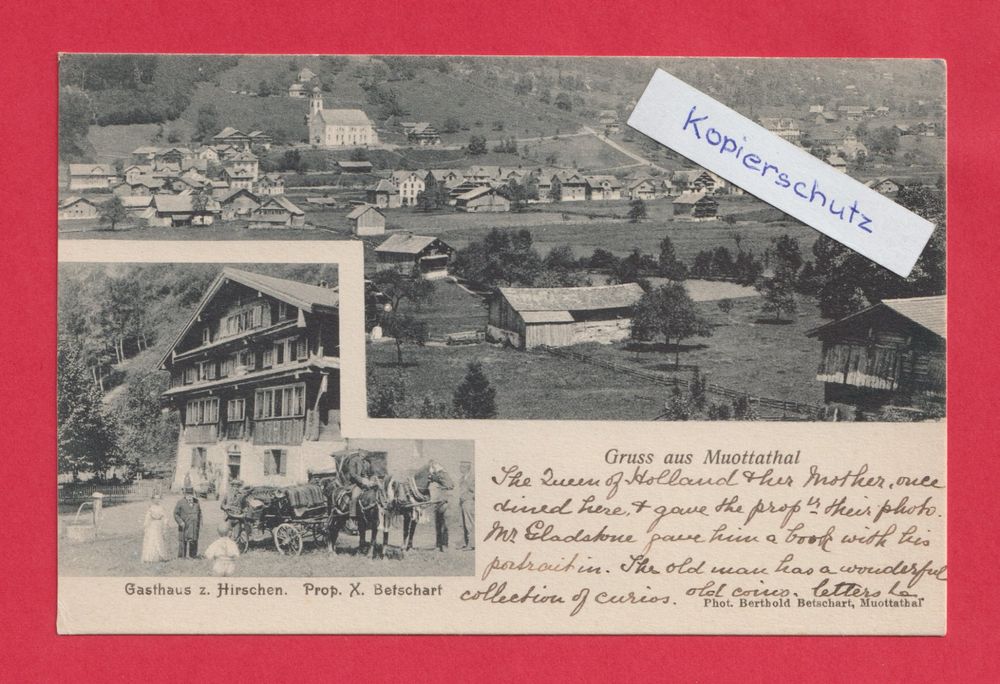 Kopierschutz
Gruss aus Muottathal
The Queen of Holland & her Mother, once
dined here, & gave the propr their photo.
Mr Gladstone gave him a book with his
portrait in. The old man has a wonderful
collection of curios. old coins. letters
Gasthaus z. Hirschen. Prop. X. Betschart
Phot. Berthold Betschart, Muottathal